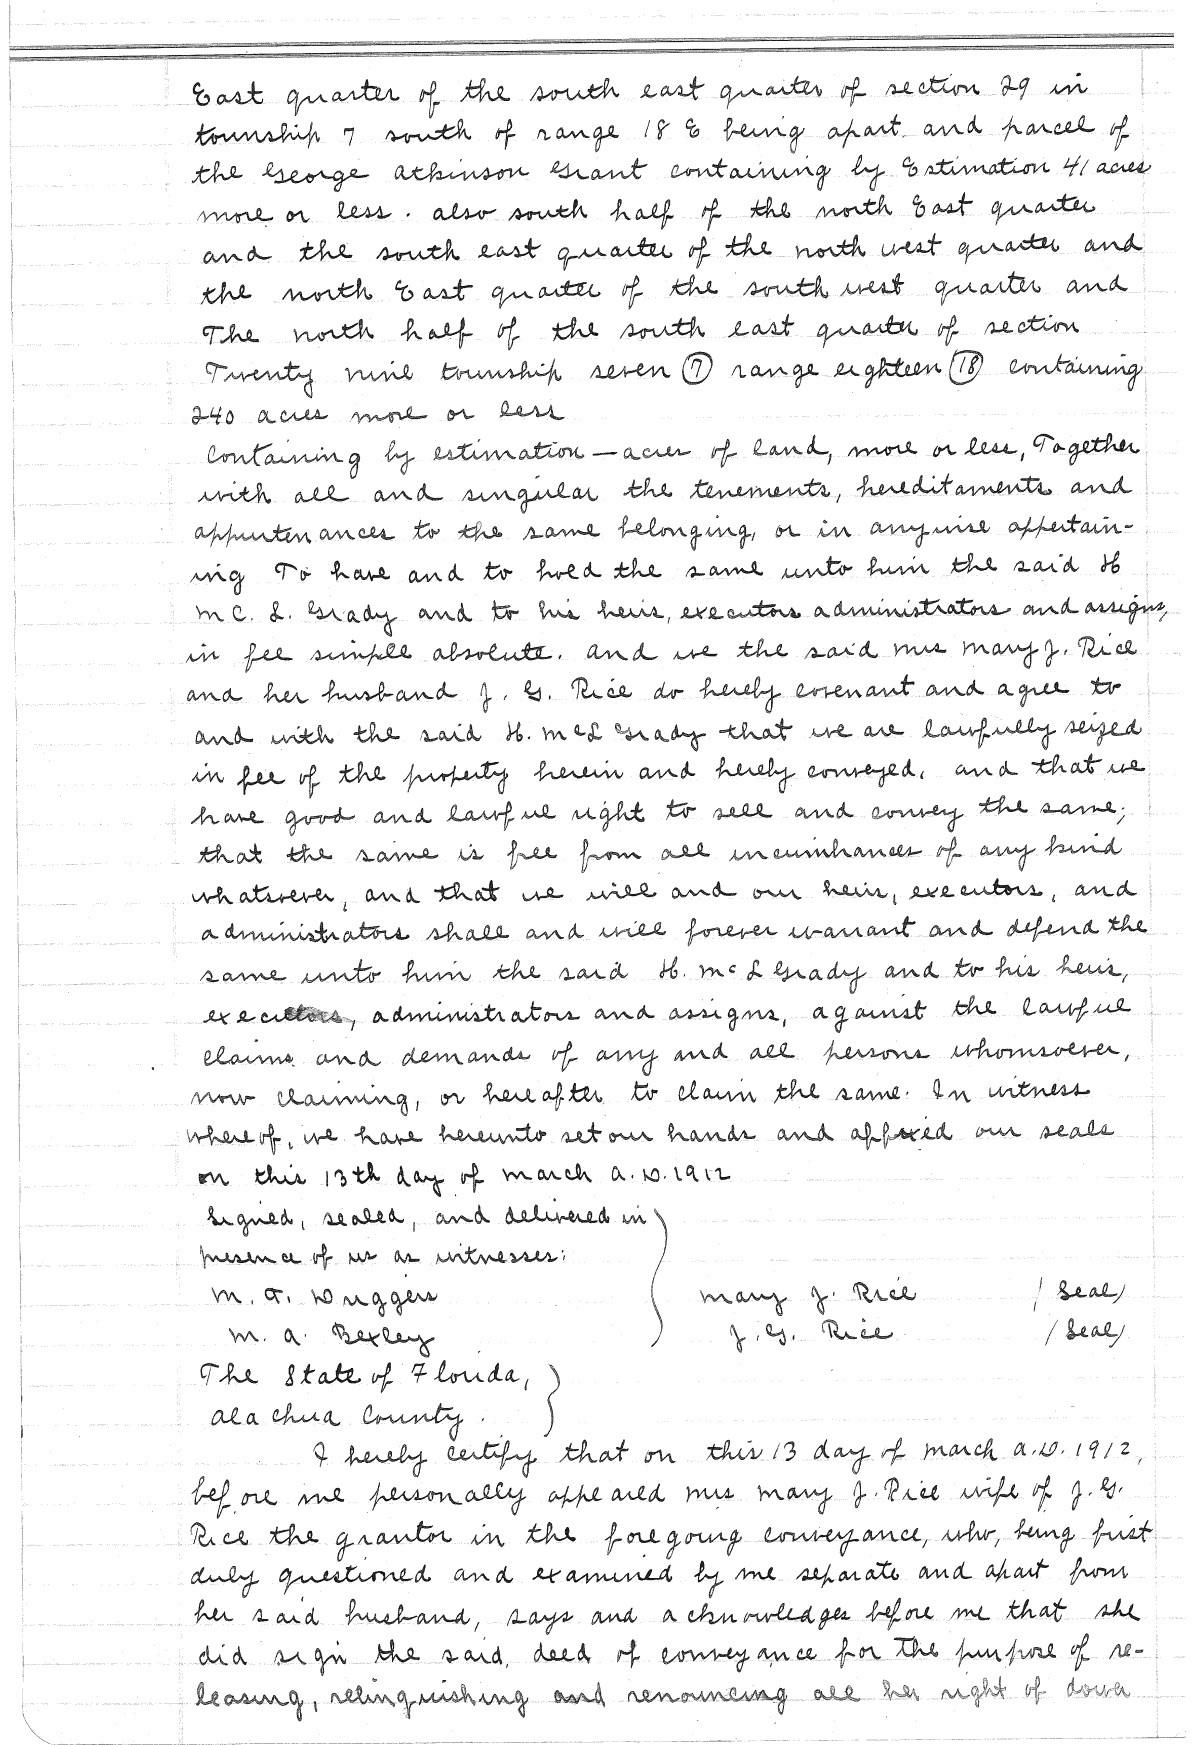 East quarter of the south east quarter of section 29 in
township 7 south of range 18 E being apart and parcel of
the George Atkinson Grant containing by Estimation 41 acres
more or less. also south half of the north East quarter
and the south east quarter of the north west quarter and
the north East quarter of the south west quarter and
The north half of the south east quarter of section
Twenty nine township seven (7) range eighteen (18) containing
240 acres more or less
Containing by estimation — acres of land, more or less, Together
with all and singular the tenements, hereditaments and
appurtenances to the same belonging, or in anywise appertain-
ing To have and to hold the same unto him the said H
Mc. L. Grady and to his heirs, executors administrators and assigns,
in fee simple absolute. and we the said Mrs Mary J. Rice
and her husband J. G. Rice do hereby covenant and agree to
and with the said H. McL Grady that we are lawfully seized
in fee of the property herein and hereby conveyed, and that we
have good and lawful right to sell and convey the same;
that the same is free from all incumbances of any kind
whatsoever, and that we will and our heirs, executors, and
administrators shall and will forever warrant and defend the
same unto him the said H. Mc L Grady and to his heirs,
executors, administrators and assigns, against the lawful
claims and demands of any and all persons whomsoever,
now claiming, or hereafter to claim the same. In witness
whereof, we have hereunto set our hands and affixed our seals
on this 13th day of March A.D. 1912
Signed, sealed, and delivered in
presence of us as witnesses:
M. T. Duggers Mary J. Rice (Seal)
M. A. Bexley J. G. Rice (Seal)
The State of Florida,
Alachua County.
I hereby certify that on this 13 day of March A.D. 1912,
before me personally appeared Mrs Mary J. Rice wife of J. G.
Rice the grantor in the foregoing conveyance, who, being first
duly questioned and examined by me separate and apart from
her said husband, says and acknowledges before me that she
did sign the said deed of conveyance for the purpose of re-
leasing, relinquishing and renouncing all her right of dower